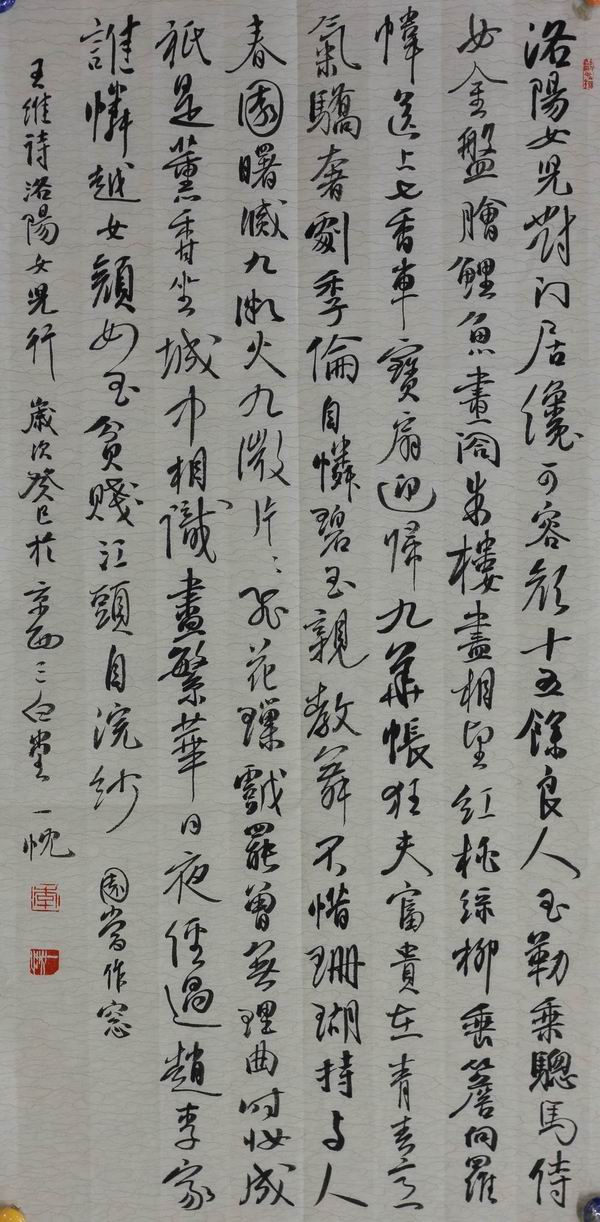 洛陽女兒對门居纔可容顔十五餘良人玉勒乘驄馬侍
女金盤膾鯉魚畫閣朱樓盡相望紅桃綠柳垂簷向羅
幃送上七香車寶扇迎歸九華帳狂夫富貴在青春意
氣驕奢劇季倫自憐碧玉親教舞不惜珊瑚持与人
春園曙滅九微火九微片〻飛花璅戲罷曾無理曲時妝成
祇是薰香坐城中相識盡繁華日夜經過趙李家
誰憐越女顏如玉貧賤江頭自浣紗 園當作窓
王維詩洛陽女兒行 歲次癸巳於京西三白堂 一忱